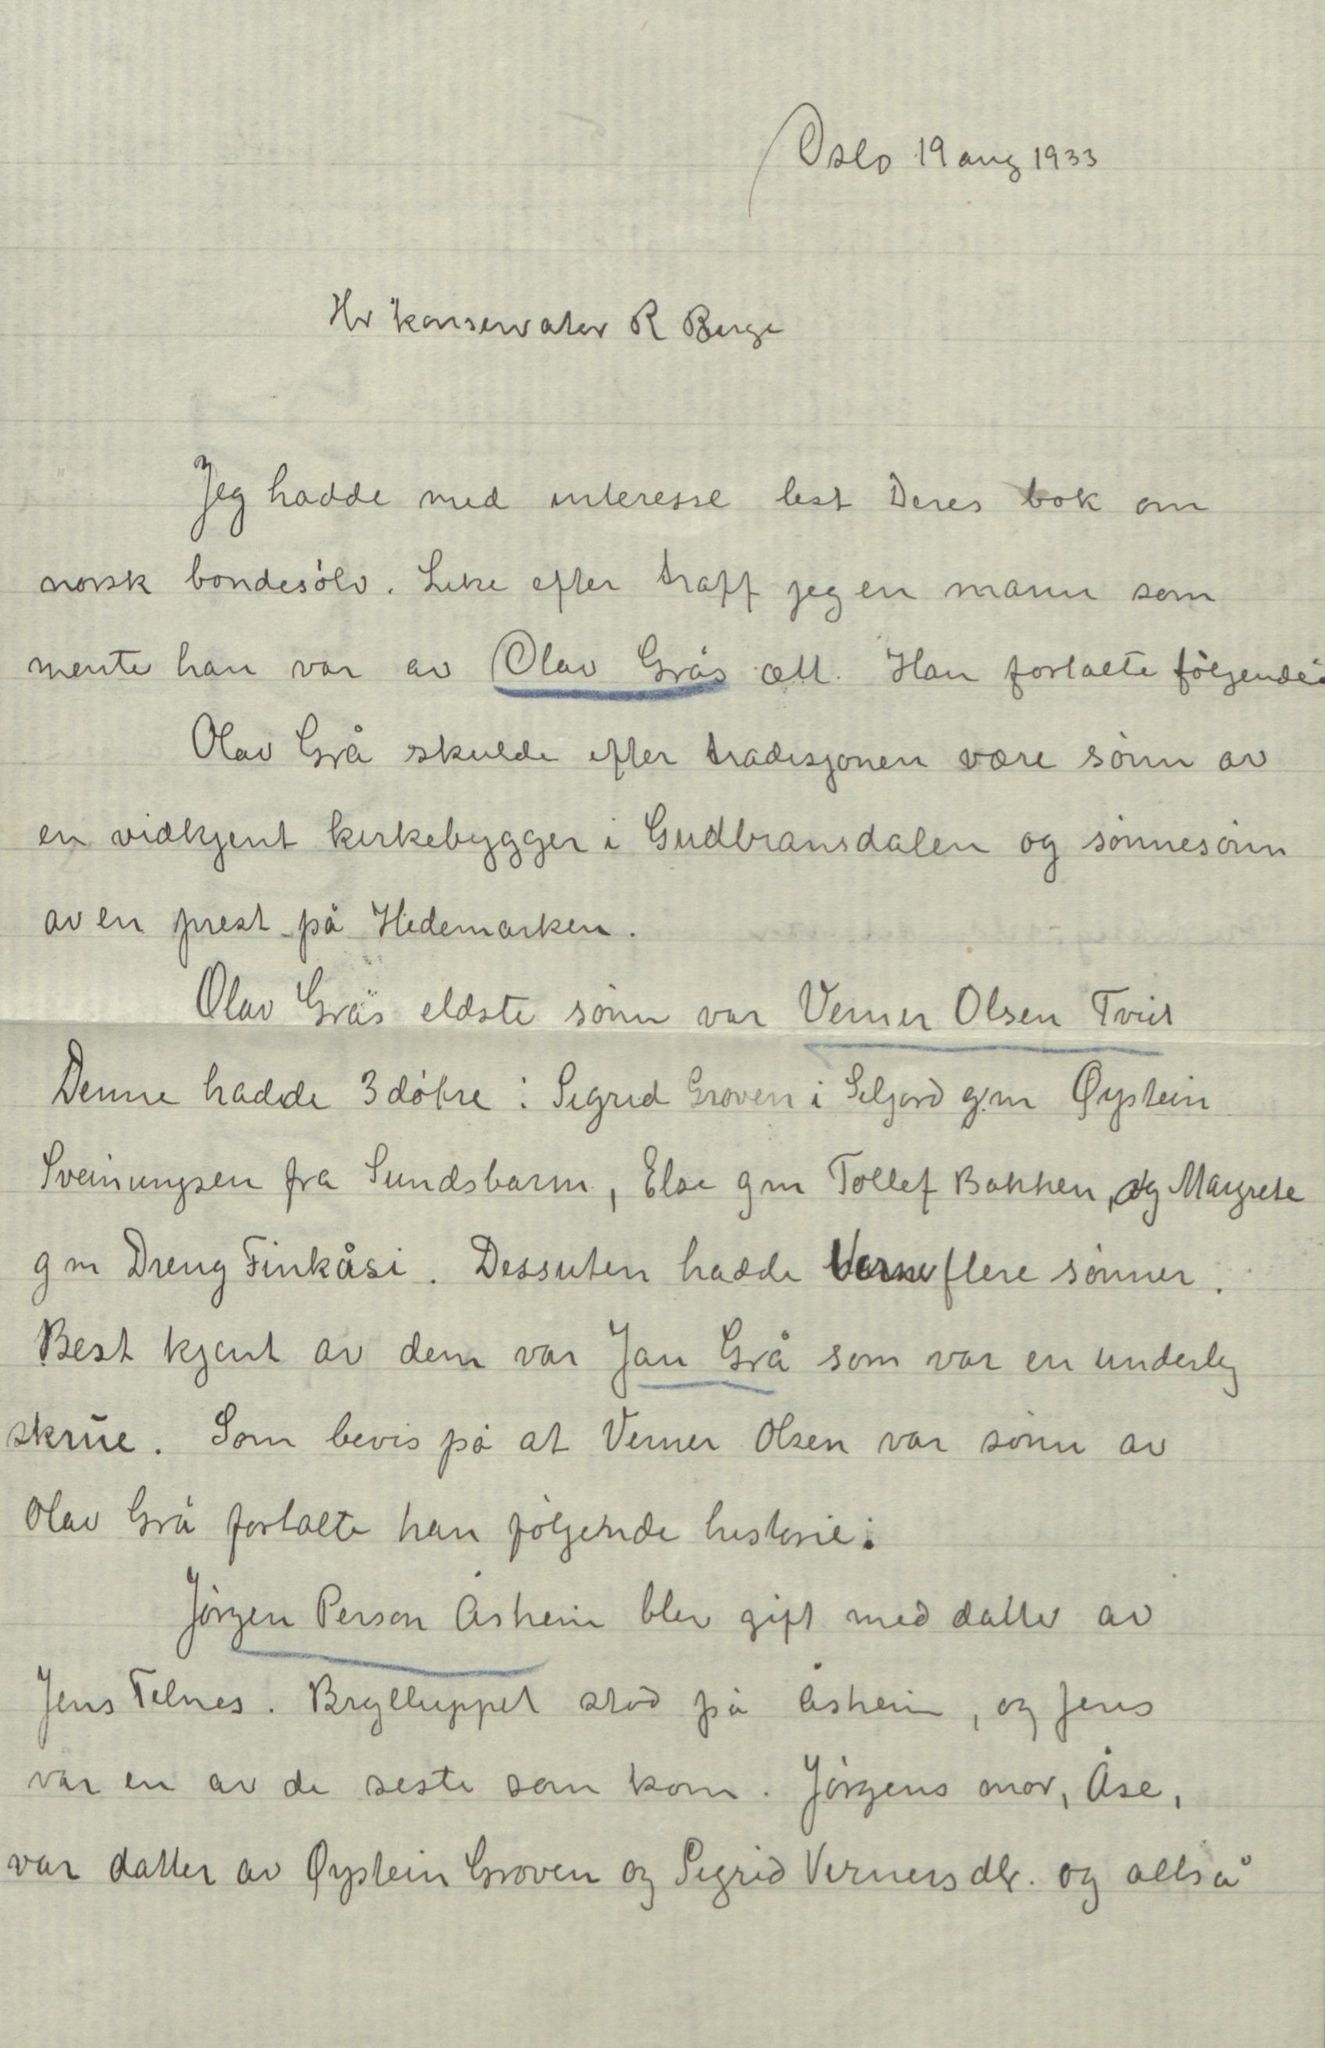 Oslo 19 aug 1933
Hr konservator R Berge
Jeg hadde med interesse lest Deres bok om
norsk bondesølv. Like efter traff jeg en mann som
mente han var av Olav Grås ætt. Han fortalte følgende:
Olav Grå skulde efter tradisjonen være sønn av
en vidkjent kirkebygger i Gudbransdalen og sønnesønn
av en prest på Hedemarken.
Olav Grås eldste sønn var Verner Olsen Tveit
Denne hadde 3 døtre: Sigrid Groven i Seljord g.m Øystein
Sveinungsen fra Sundsbarm, Else g m Tollef Bakken, og Margrete
g m Dreng Finkåsi. Dessuten hadde Verner flere sønner.
Best kjent av dem var Jan Grå som var en underlig
skrue. Som bevis på at Verner Olsen var sønn av
Olav Grå fortalte han følgende historie:
Jörgen Person Åsheim blev gift med datter av
Jens Telnes. Brylluppet stod på Åsheim, og Jens
var en av de siste som kom. Jørgens mor, Åse,
var datter av Øystein Groven og Sigrid Verners dtr. og altså